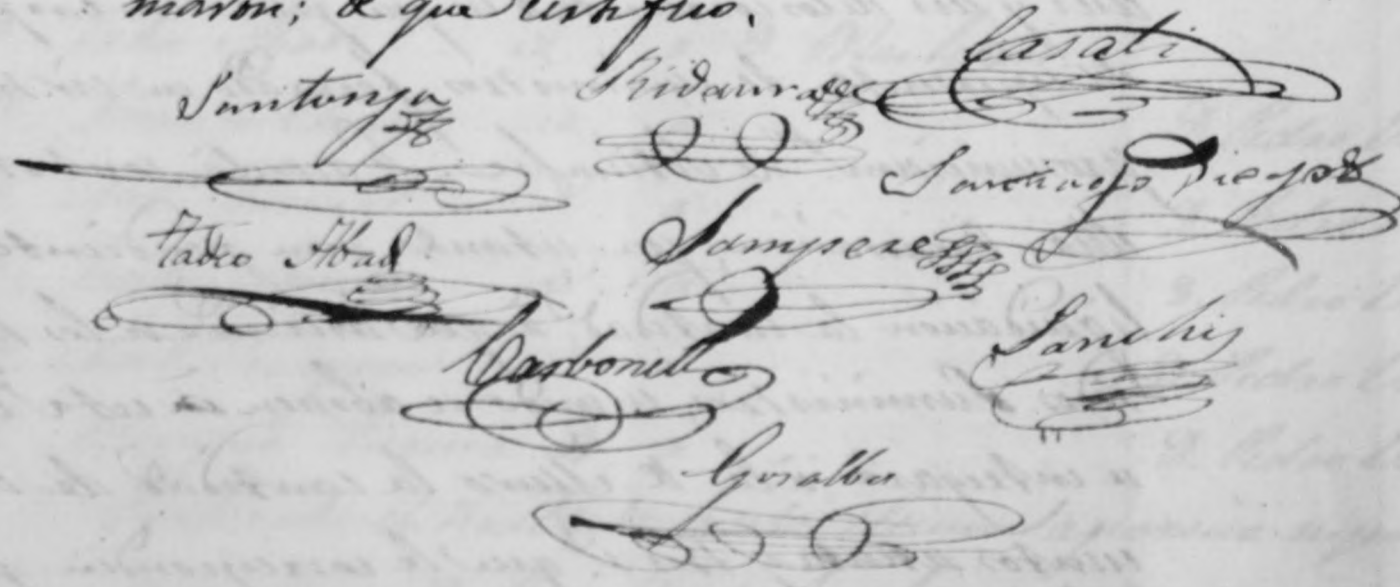 maron; de que certifico.
Santonja Ridaura Casali
Santiago Diego
Tadeo Abad Sempere
Carbonell Sanchis
Gosalbez